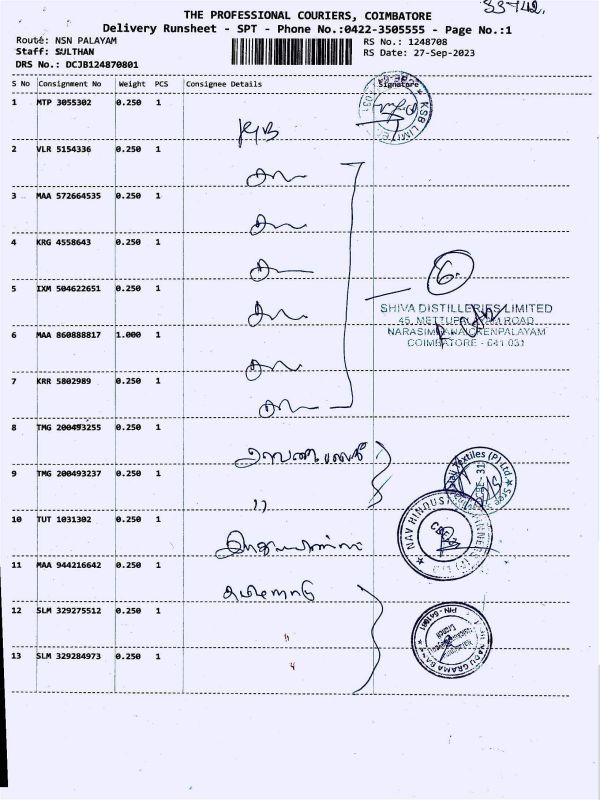 33742.
THE PROFESSIONAL COURIERS, COIMBATORE
Delivery Runsheet - SPT - Phone No.:0422-3505555 - Page No.:1
Route: NSN PALAYAM
Staff: SULTHAN
DRS No.: DCJB124870801
RS No.: 1248708
RS Date: 27-Sep-2023
S No Consignment No Weight PCS Consignee Details Signature
1 MTP 3055302 0.250 1
KSB LIMITED
2 VLR 5154336 0.250 1
3 MAA 572664535 0.250 1
4 KRG 4558643 0.250 1
6
5 IXM 504622651 0.250 1
SHIVA DISTILLERIES LIMITED
45, METTUPALAYAM ROAD
NARASIMHANAICKENPALAYAM
COIMBATORE - 641 031
6 MAA 860888817 1.000 1
7 KRR 5802989 0.250 1
8 TMG 200493255 0.250 1
Textiles (P) Ltd.
9 TMG 200493237 0.250 1
"
10 TUT 1031302 0.250 1
NAV HINDUSTAN
11 MAA 944216642 0.250 1
12 SLM 329275512 0.250 1
"
NADU GRAMA BANK
13 SLM 329284973 0.250 1
"